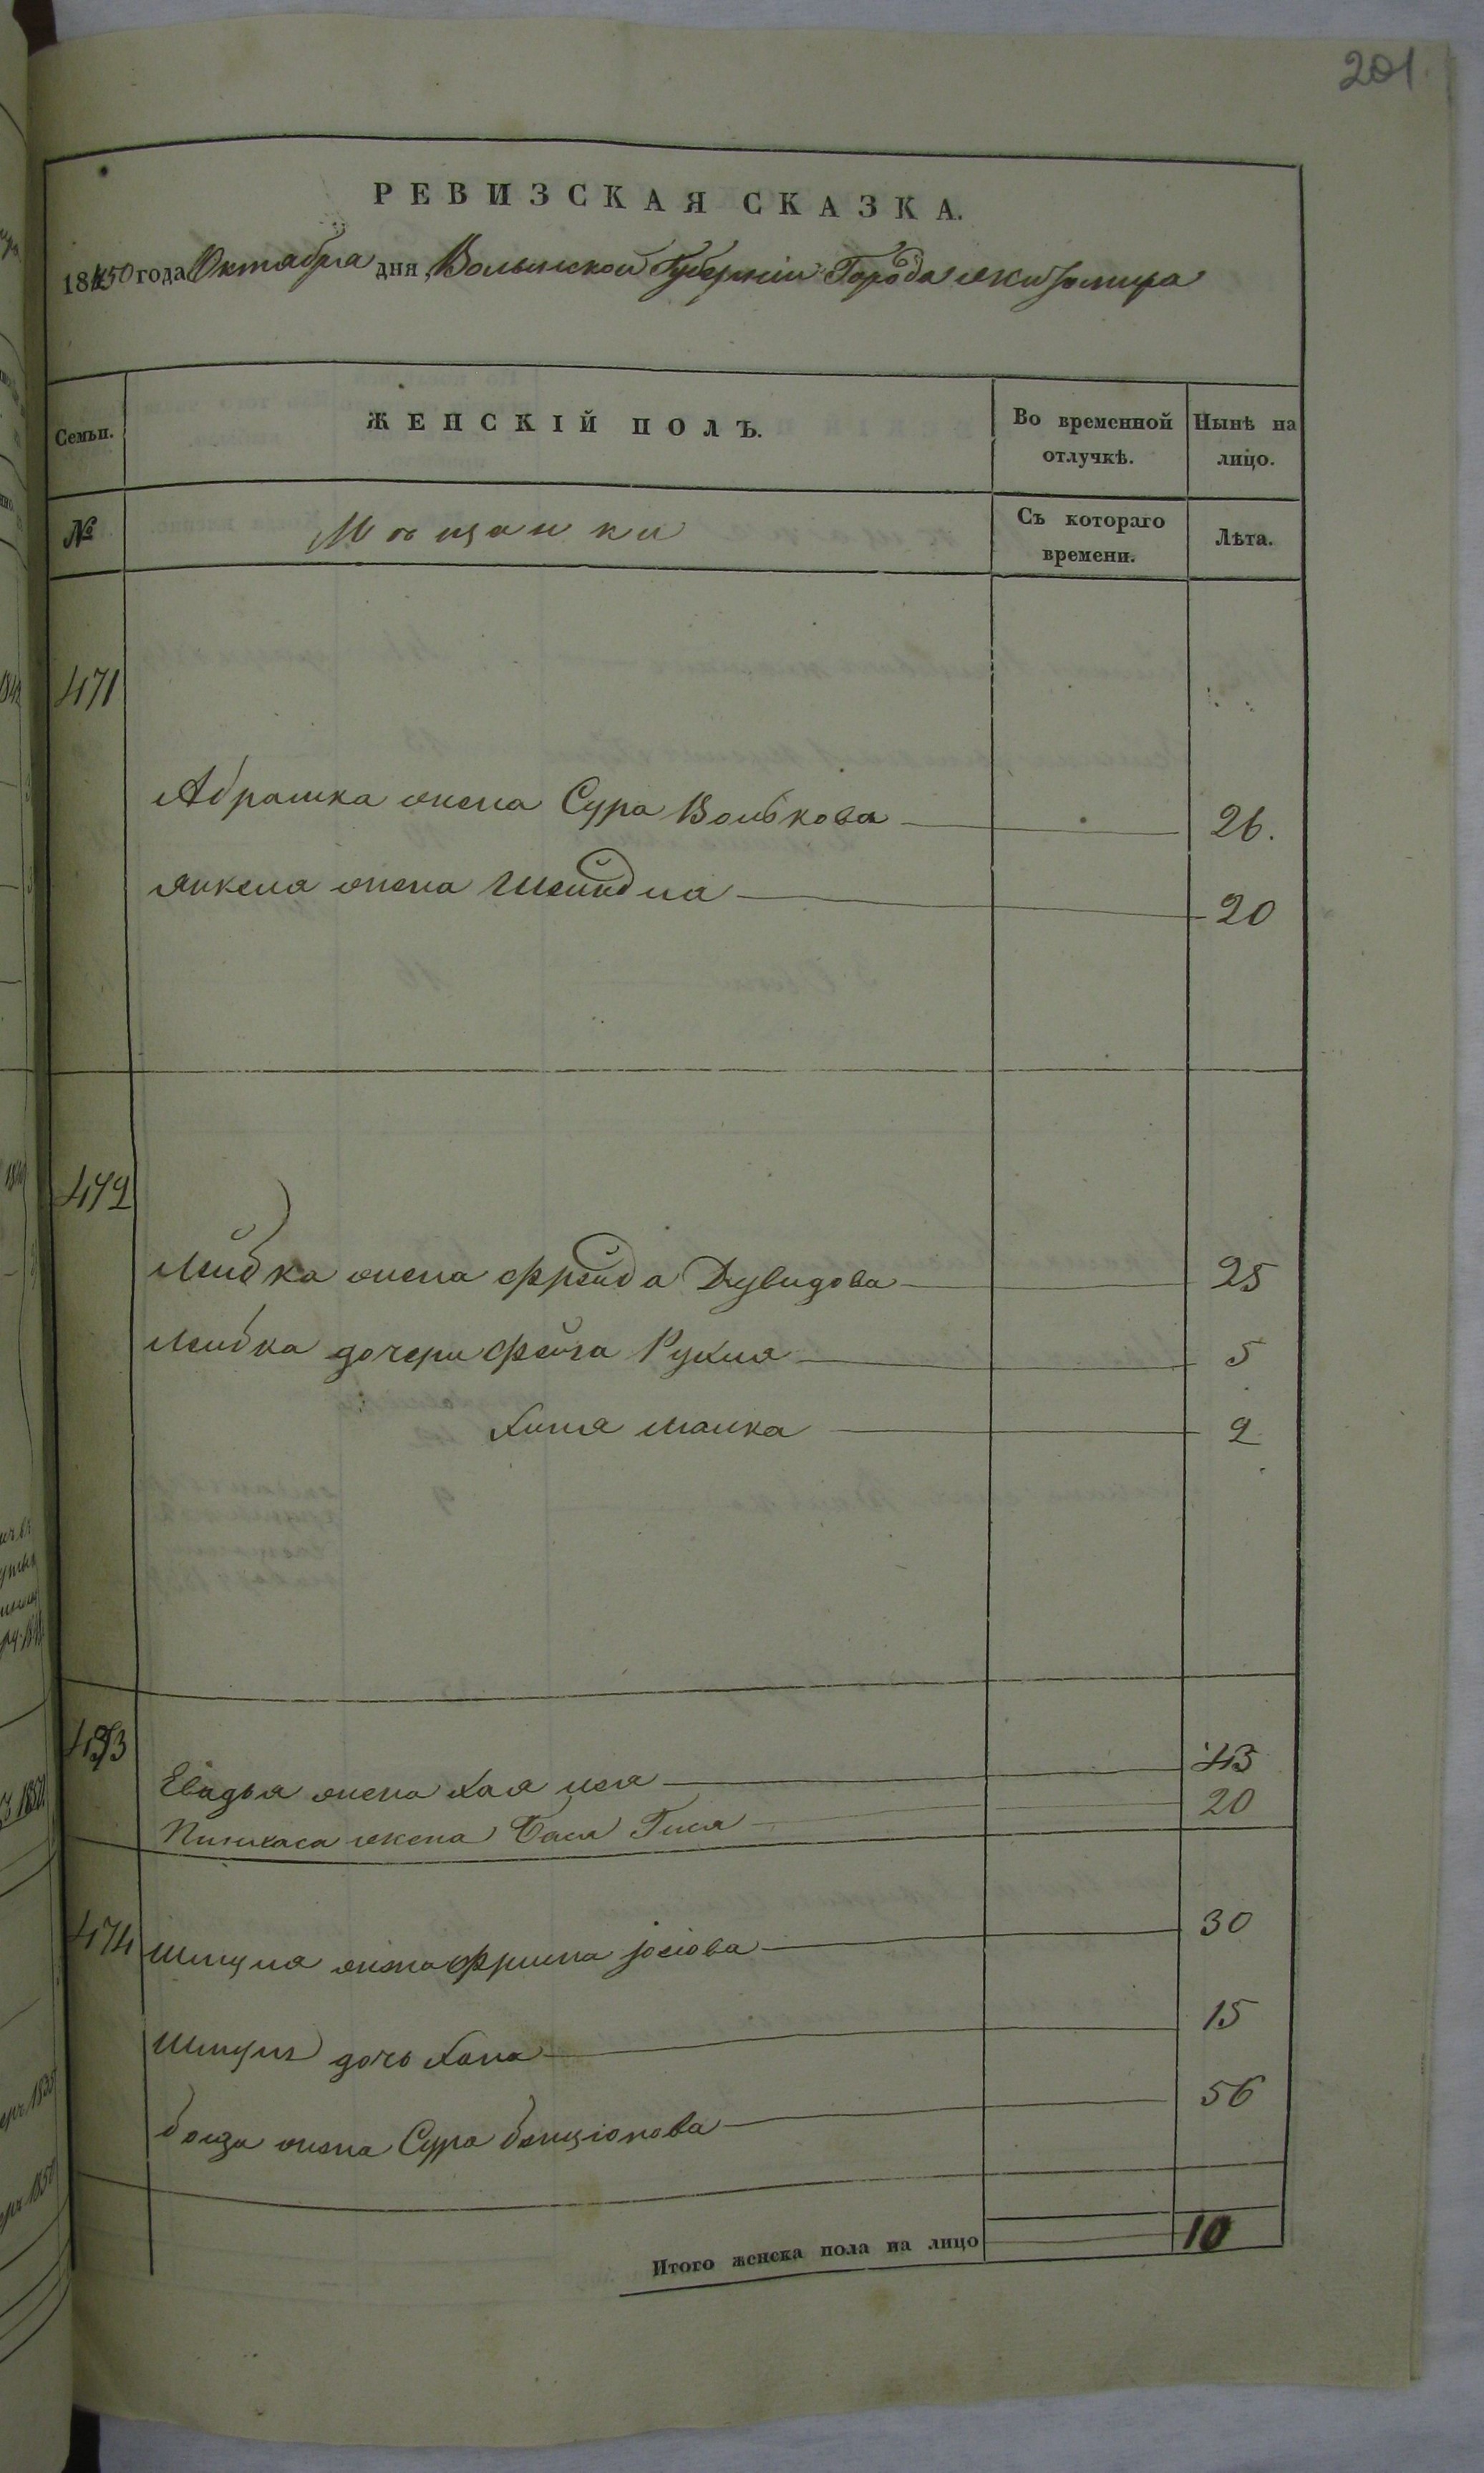 201
РЕВИЗСКАЯ СКАЗКА.
1850 года Октабра дня, Волынской Губернiи Города Житомира
Семьи.
ЖЕНСКIЙ ПОЛЪ.
Во временной отлучкѣ.
Нынѣ на лицо.
№
Мѣщанки
Съ котораго времени.
Лѣта.
471
Абрамка жена Сура Волькова 26.
Янкеля жена Шейндля 20
472
Лейбка жена Фрейда Дувидова 25
Лейбка дочери Фейга Рухля 5
Хиня Малка 2
473
Евадья жена Хая 43
Пинхаса жена Бася Гися 20
474
Шмуля жена Фрима Iосiова 30
Шмуля дочь Хана 15
жена Сура Бенцiонова 56
Итого женска пола на лицо 10